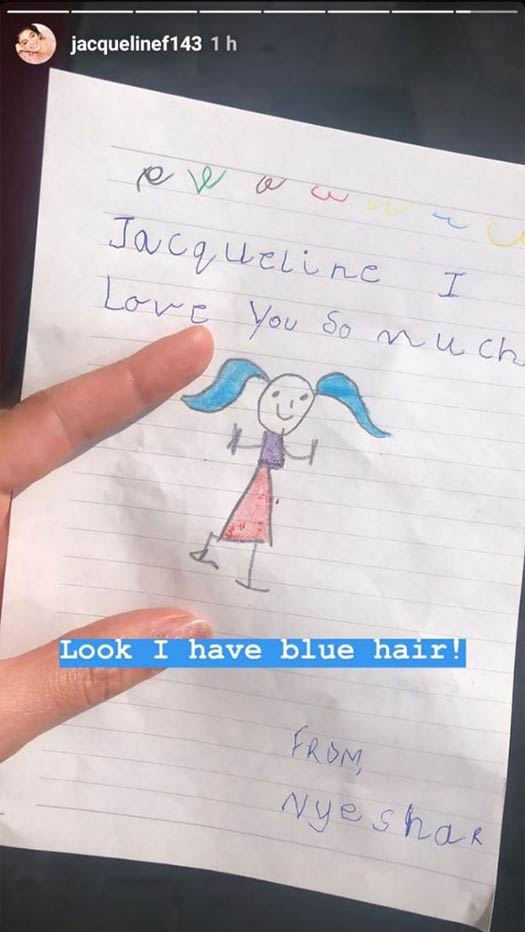 jacquelinef143 1 h
Jacqueline I
Love You So much
Look I have blue hair!
FROM,
Nyeshar